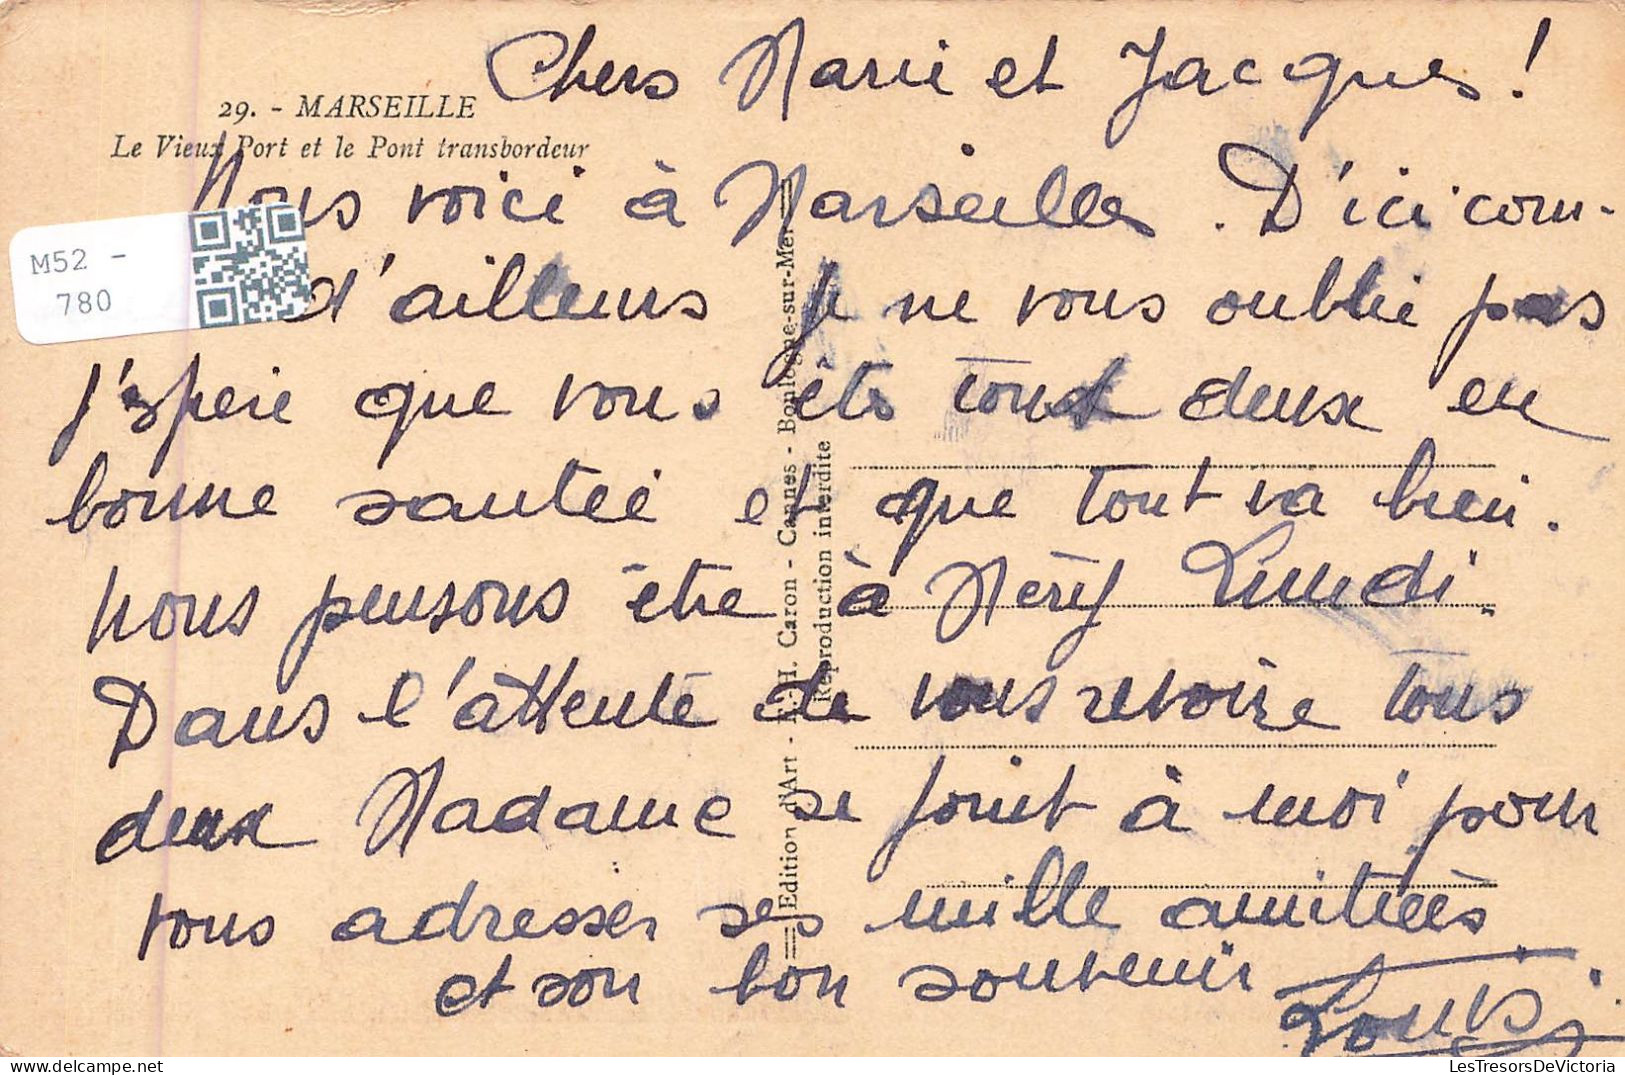 Chers Marie et Jacques !
29. - MARSEILLE
Le Vieux Port et le Pont transbordeur
Nous voici à Marseille. D'ici com-
d'ailleurs je ne vous oublie pas
j'espere que vous êts tout deux en
bonne santeé et que tout va bien.
Nous pensons être à Néry Lundi.
Dans l'attente de vous revoire tous
deux Madame se joint à moi pour
vous adresser ses mille amitiées
et son bon souvenir
Louis
Edition d'Art - Caron - Cannes - Boulogne-sur-Mer
Reproduction interdite
M52 -
780
LesTresorsDeVictoria